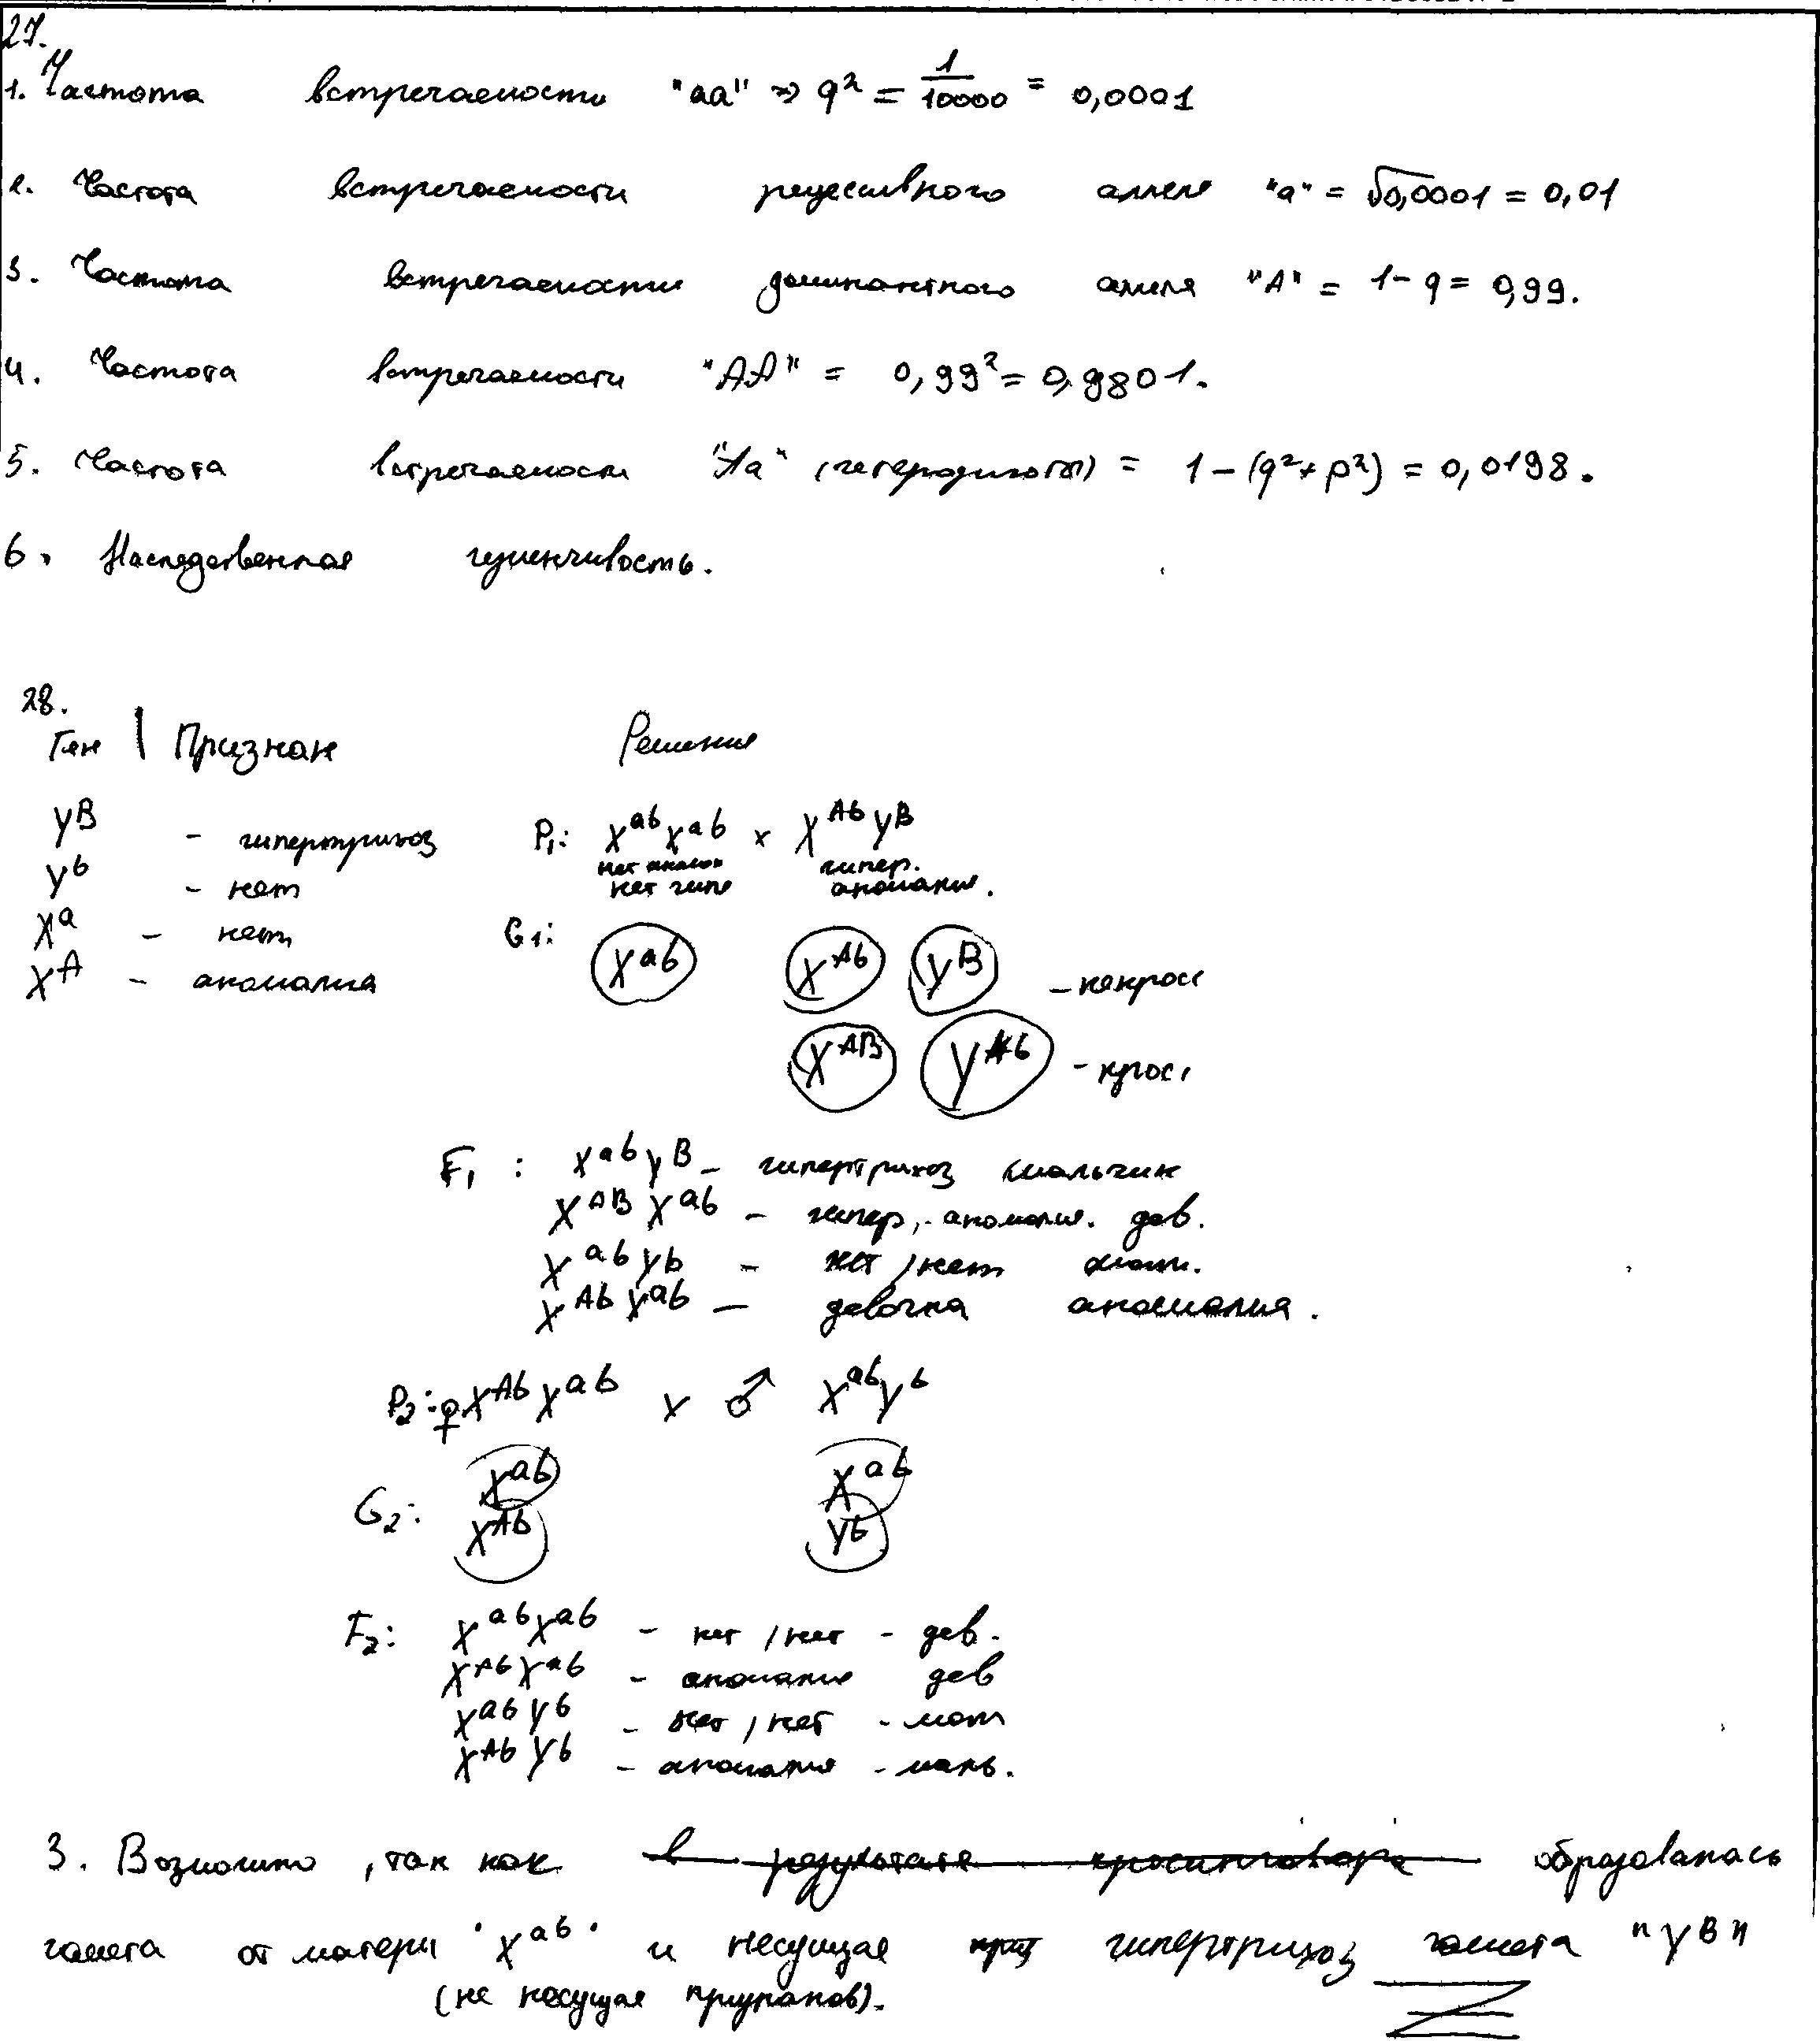 27.
1. Частота встречаемости "aa" => q² = 1/10000 = 0,0001
2. Частота встречаемости рецессивного аллеля "a" = √0,0001 = 0,01
3. Частота встречаемости доминантного аллеля "A" = 1 - q = 0,99.
4. Частота встречаемости "AA" = 0,99² = 0,9801.
5. Частота встречаемости "Aa" (гетерозигота) = 1 - (q² + p²) = 0,0198.
6. Наследственная изменчивость.
28.
Ген | Признак Решение
Y^B - гипертрихоз P₁: X^ab X^ab x X^Ab Y^B
Y^b - нет нет аномал нет гипе гипер. аномалия.
X^a - нет G₁: X^ab X^Ab Y^B - некрос
X^A - аномалия
X^AB Y^Ab - крос
F₁: X^ab Y^B - гипертрихоз мальчик
X^AB X^ab - гипер, - аномалия. дев.
X^ab Y^b - нет / нет
X^Ab X^ab - девочка аномалия.
P₂: ♀ X^Ab X^ab x ♂ X^ab Y^b
G₂: X^ab X^ab
X^Ab Y^b
F₂: X^ab X^ab - нет / нет - дев.
X^Ab X^ab - аномалия дев
X^ab Y^b - нет / нет - мал
X^Ab Y^b - аномалия - маль.
3. Возможно, так как в результате кроссинговера образовалась
гамета от матери "X^ab" и несущая гипертрихоз гамета "Y^B"
(не несущая признаков).